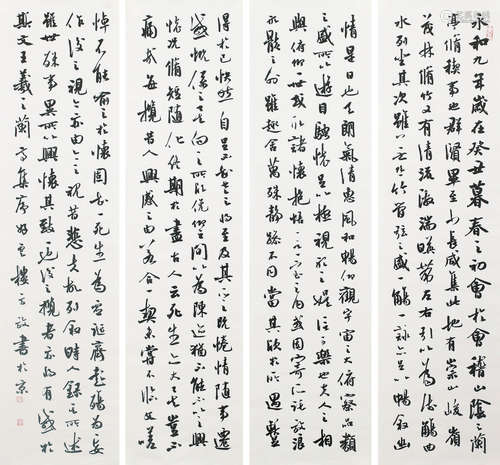 永和九年歲在癸丑暮春之初會於會稽山陰之蘭
亭脩禊事也群賢畢至少長咸集此地有崇山峻嶺
茂林脩竹又有清流激湍暎帶左右引以為流觴曲
水列坐其次雖無絲竹管弦之盛一觴一詠亦足以暢敘幽
情是日也天朗氣清惠風和暢仰觀宇宙之大俯察品類
之盛所以遊目騁懷足以極視聽之娛信可樂也夫人之相
與俯仰一世或取諸懷抱悟言一室之內或因寄所託放浪
形骸之外雖趣舍萬殊靜躁不同當其欣於所遇暫
得於己快然自足不知老之將至及其所之既惓情隨事遷
感慨係之矣向之所欣俛仰之間以為陳迹猶不能不以之興
懷況脩短隨化終期於盡古人云死生亦大矣豈不
痛哉每攬昔人興感之由若合一契未嘗不臨文嗟
悼不能喻之於懷固知一死生為虛誕齊彭殤為妄
作後之視今亦由今之視昔悲夫故列敘時人錄其所述
雖世殊事異所以興懷其致一也後之攬者亦將有感於
斯文王羲之蘭亭集序 樓 書於京